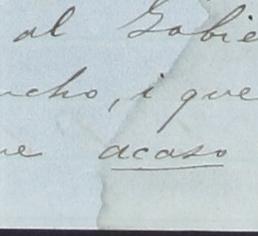 al Gobie
ucho, i que
ue acaso